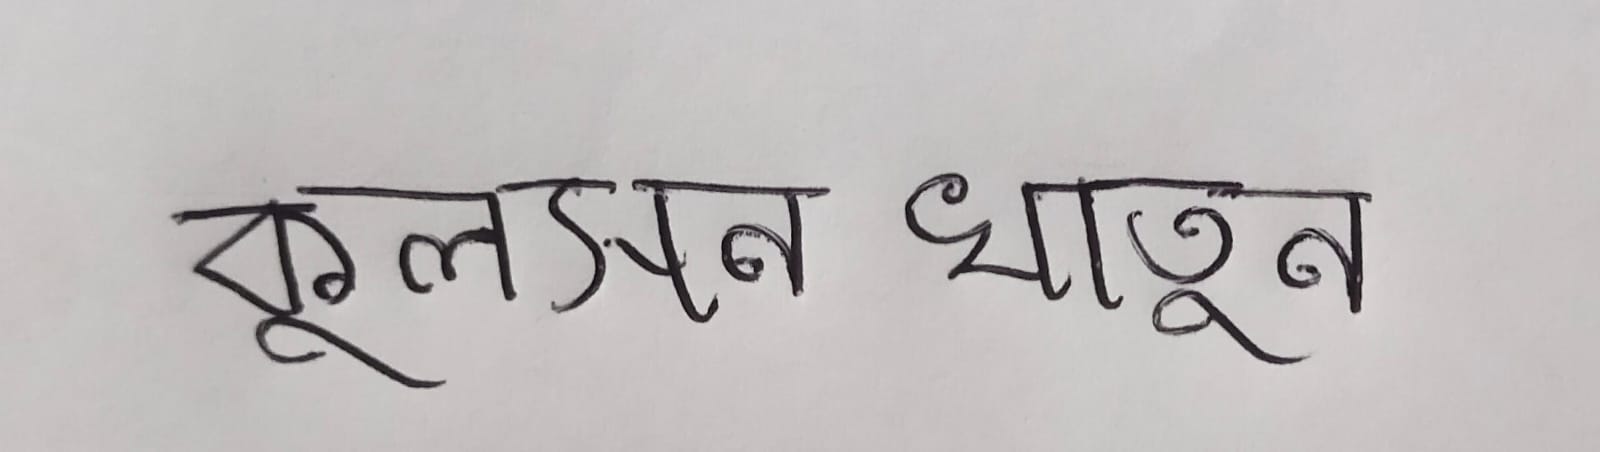 কুলসন খাতুন